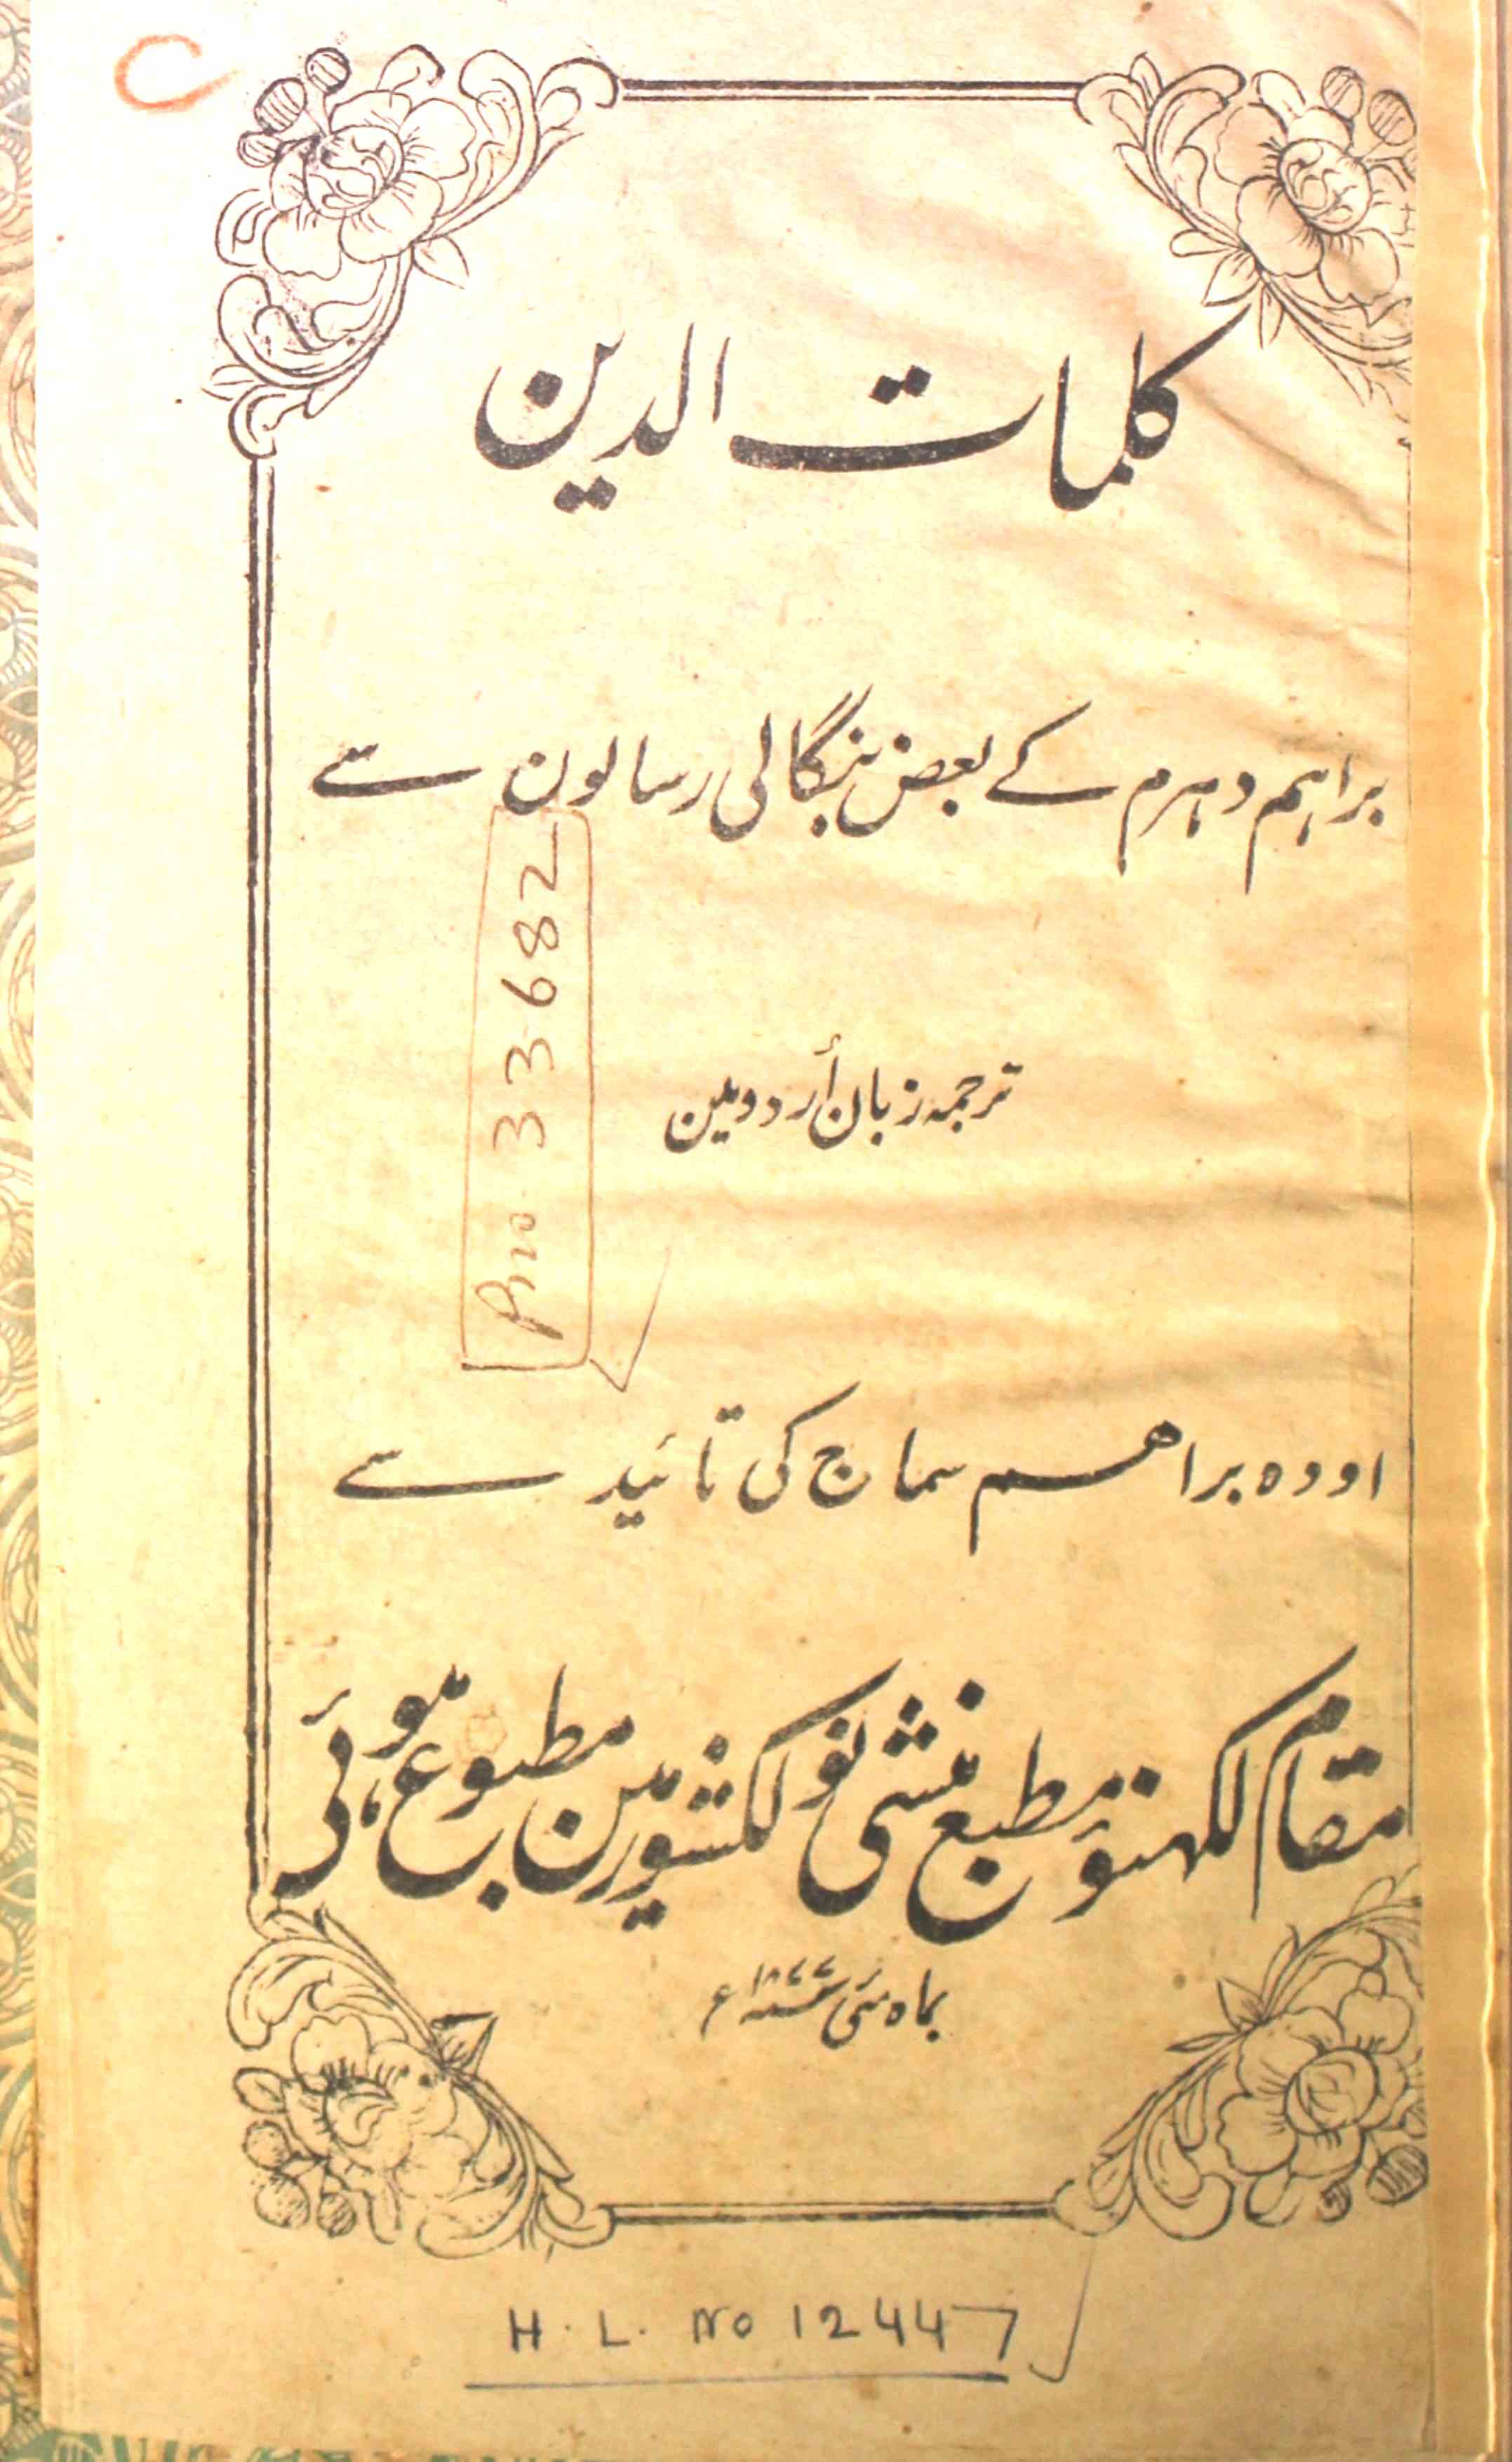 کلمات الدین
براہم دہرم کے بعض بنگالی رسالون سے
ترجمہ زبان أردو مین
اودہ براهم سماج کی تائید سے
مقام لکہنؤ مطبع منشی نولکشور مین مطبوع ہوئی
بماہ مئی ۱۸۷۷ء
Pno 33682
H. L. No 12447